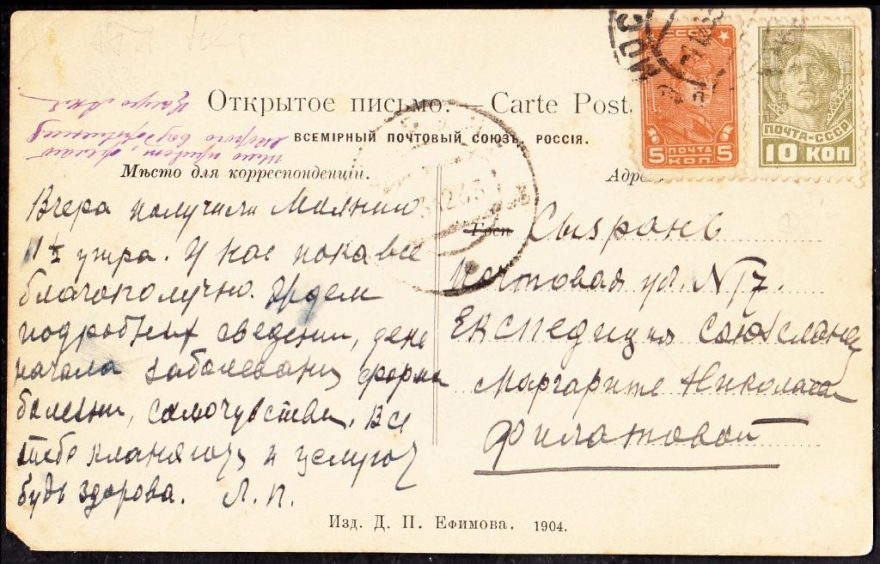 Открытое письмо. — Carte Post.
ВСЕМІРНЫЙ ПОЧТОВЫЙ СОЮЗЪ. РОССІЯ.
Мѣсто для корреспонденціи.
Адре
СССР
ПОЧТА
5 КОП. 5
ПОЧТА·СССР
10 КОП
МОС
шлю привет, желаю
скорого выздоровления
Целую
Вчера получили Молнию
11 ½ утра. У нас пока все
благополучно. Ждем
подробных сведений, день
начала заболевания, форма
болезни, самочувствия. Все
тебе кланяются и целуют
будь здорова. Л. П.
Сызрань
Почтовая ул. N 17.
Экспедиция Союзсланец
Маргарите Николаев
Филатовой
Изд. Д. П. Ефимова. 1904.